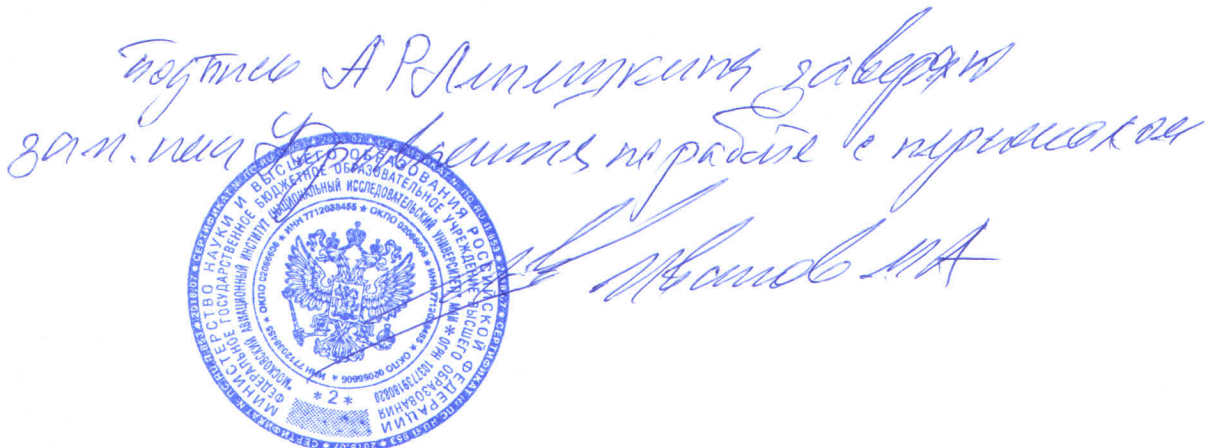 подпись А Р Липицкина заверяю
зам. нач Управления по работе с персоналом
Иванов МА
МИНИСТЕРСТВО НАУКИ И ВЫСШЕГО ОБРАЗОВАНИЯ РОССИЙСКОЙ ФЕДЕРАЦИИ
ФЕДЕРАЛЬНОЕ ГОСУДАРСТВЕННОЕ БЮДЖЕТНОЕ ОБРАЗОВАТЕЛЬНОЕ УЧРЕЖДЕНИЕ ВЫСШЕГО ОБРАЗОВАНИЯ
"МОСКОВСКИЙ АВИАЦИОННЫЙ ИНСТИТУТ (НАЦИОНАЛЬНЫЙ ИССЛЕДОВАТЕЛЬСКИЙ УНИВЕРСИТЕТ)" МАИ * ОГРН 1037739180820
* ИНН 7712038455 * ОКПО 02066606 * ИНН 7712038455 * ОКПО 02066606
* 2 *